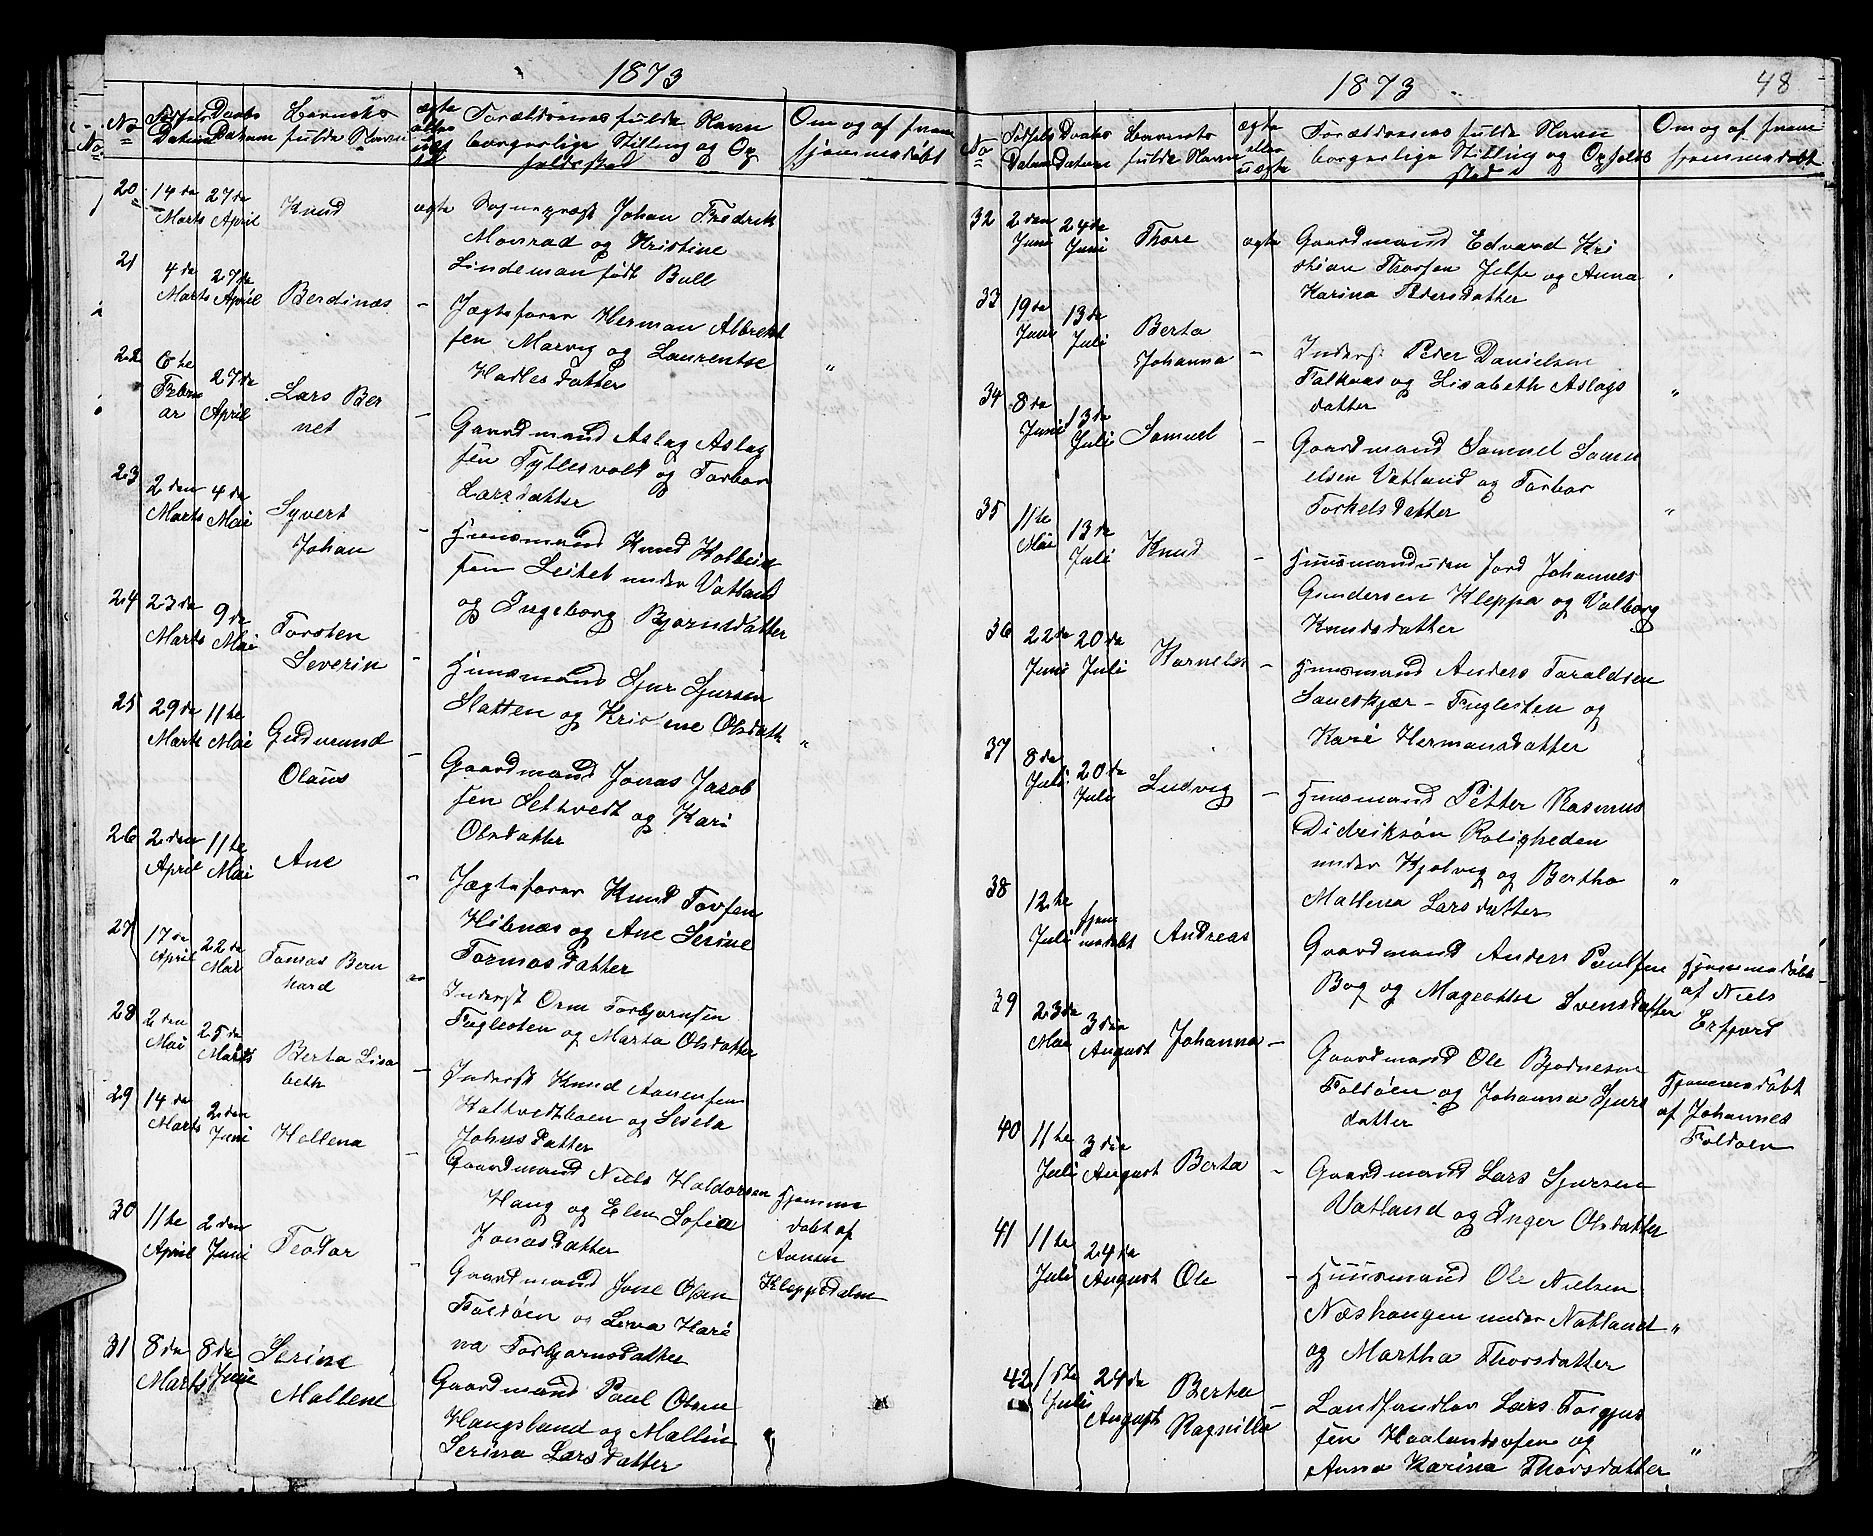 1873
No
Fødsels Datum
Daabs Datum
Barnets fulde Navn
ægte eller uægte
Forældrenes fulde Navn
borgerlige Stilling og Op
holdssted
Om og af hvem
hjemmedøbt
20
14de Marts
27de April
Knud
ægte
Sognepræst Johan Fredrik
Monrad og Kristine
Lindeman født Bull
21
4de Marts
27de April
Berdinæs
-
Jægtsforer Herman Albrekt
sen Marvig og Laurentse
Hadlesdatter
"
22
6te Febru
ar
27de April
Lars Ber
net
-
Gaardmand Aslag Aslag
sen Tyttesvolt og Torbor
Larsdatter
23
2den Marts
4de Mai
Syvert
Johan
-
Huusmand Knud Kolbein
sen Leitet under Vatland
og Ingeborg Bjornsdatter
24
23de Marts
9de Mai
Torsten
Severin
-
Huusmand Sjur Sjursen
Slatten og Kristine Olsdatt
"
25
29de Marts
11te Mai
Gudmund
Olaus
-
Gaardmand Jonas Jacob
sen Sethvedt og Kari
Olsdatter
26
2den April
11te Mai
Ane
-
Jægtsforer Knud Tovsen
Hibnæs og Ane Serine
Tormosdatter
27
17de April
22de Mai
Tomas Bern
hard
Inderst Orm Torbjornsen
Fuglesten og Marta Olsdatter
28
2den Mai
25de Marts
Berta Lisa
beth
-
Inderst Knud Aanensen
Kalhvedtboen og Sesela
Johnsdatter
29
14de Marts
2den Juni
Hellena
-
Gaardmand Niels Haldorsen
Haug og Elen Sofia
Jonasdatter
Hjemme
dobt af
Aanen
Kleppedalen
30
11te April
2den Juni
Teodor
-
Gaardmand Jone Olsen
Foldøen og Lena Kari
na Torbjornsdatter
31
8de Marts
8de Juni
Serine
Mallene
Gaardmand Paul Olsen
Haugsland og Mallin
Serina Larsdatter
1873
48
No
Fødsels Datum
Daabs Datum
Barnets
fulde Navn
ægte eller uægte
Forældrenes fulde Navn
borgerlige Stilling og Opholds
sted
Om og af hvem
hjemmedøbt
32
2den Juni
24de Juni
Thore
ægte
Gaardmand Edvard Kri
stian Thorsen Jelse og Anna
Karina Pedersdatter
33
19de Juni
13de Juli
Berta
Johanna
-
Inderst Peder Danielsen
Falknæs og Lisabeth Aslags
datter
"
34
8de Juni
13de Juli
Samuel
-
Gaardmand Samuel Samu
elsen Vatland og Torbor
Torkelsdatter
"
35
11te Mai
13de Juli
Knud
-
Huusmand uden Jord Johannes
Gundersen Kleppa og Valborg
Knudsdatter
36
22de Juni
20de Juli
Karnelis
-
Huusmand Anders Taraldsen
Saueskjær - Fuglesten og
Kari Hermansdatter
37
8de Juli
20de Juli
Ludvig
-
Huusmand Petter Rasmus
Didriksøn Roligheden
under Kjolvig og Bertha
Mallena Larsdatter
"
38
12te Juli
hjem
medøbt
Andreas
Gaardmand Anders Paulsen
Bog og Magrethe Svensdatter
Hjemmedøbt
af Niels
Erfjord
39
23de Mai
3die August
Johanna
-
Gaardmand Ole Bjørnesen
Foldøen og Johanna Sjurs
datter
Hjemmedøbt
af Johannes
Foldøen
40
11te Juli
3die August
Berta
-
Gaardmand Lars Sjursen
Vatland og Inger Olsdatter
41
11te Juli
24de August
Ole
-
Huusmand Ole Nielsen
Næshaugen under Natland
og Martha Thorsdatter
"
42
1ste Juli
24de August
Berta
Ragnilla
-
Landhandler Lars Torgjus
sen Haalandsosen og
Anna Karina Thorsdatter
"